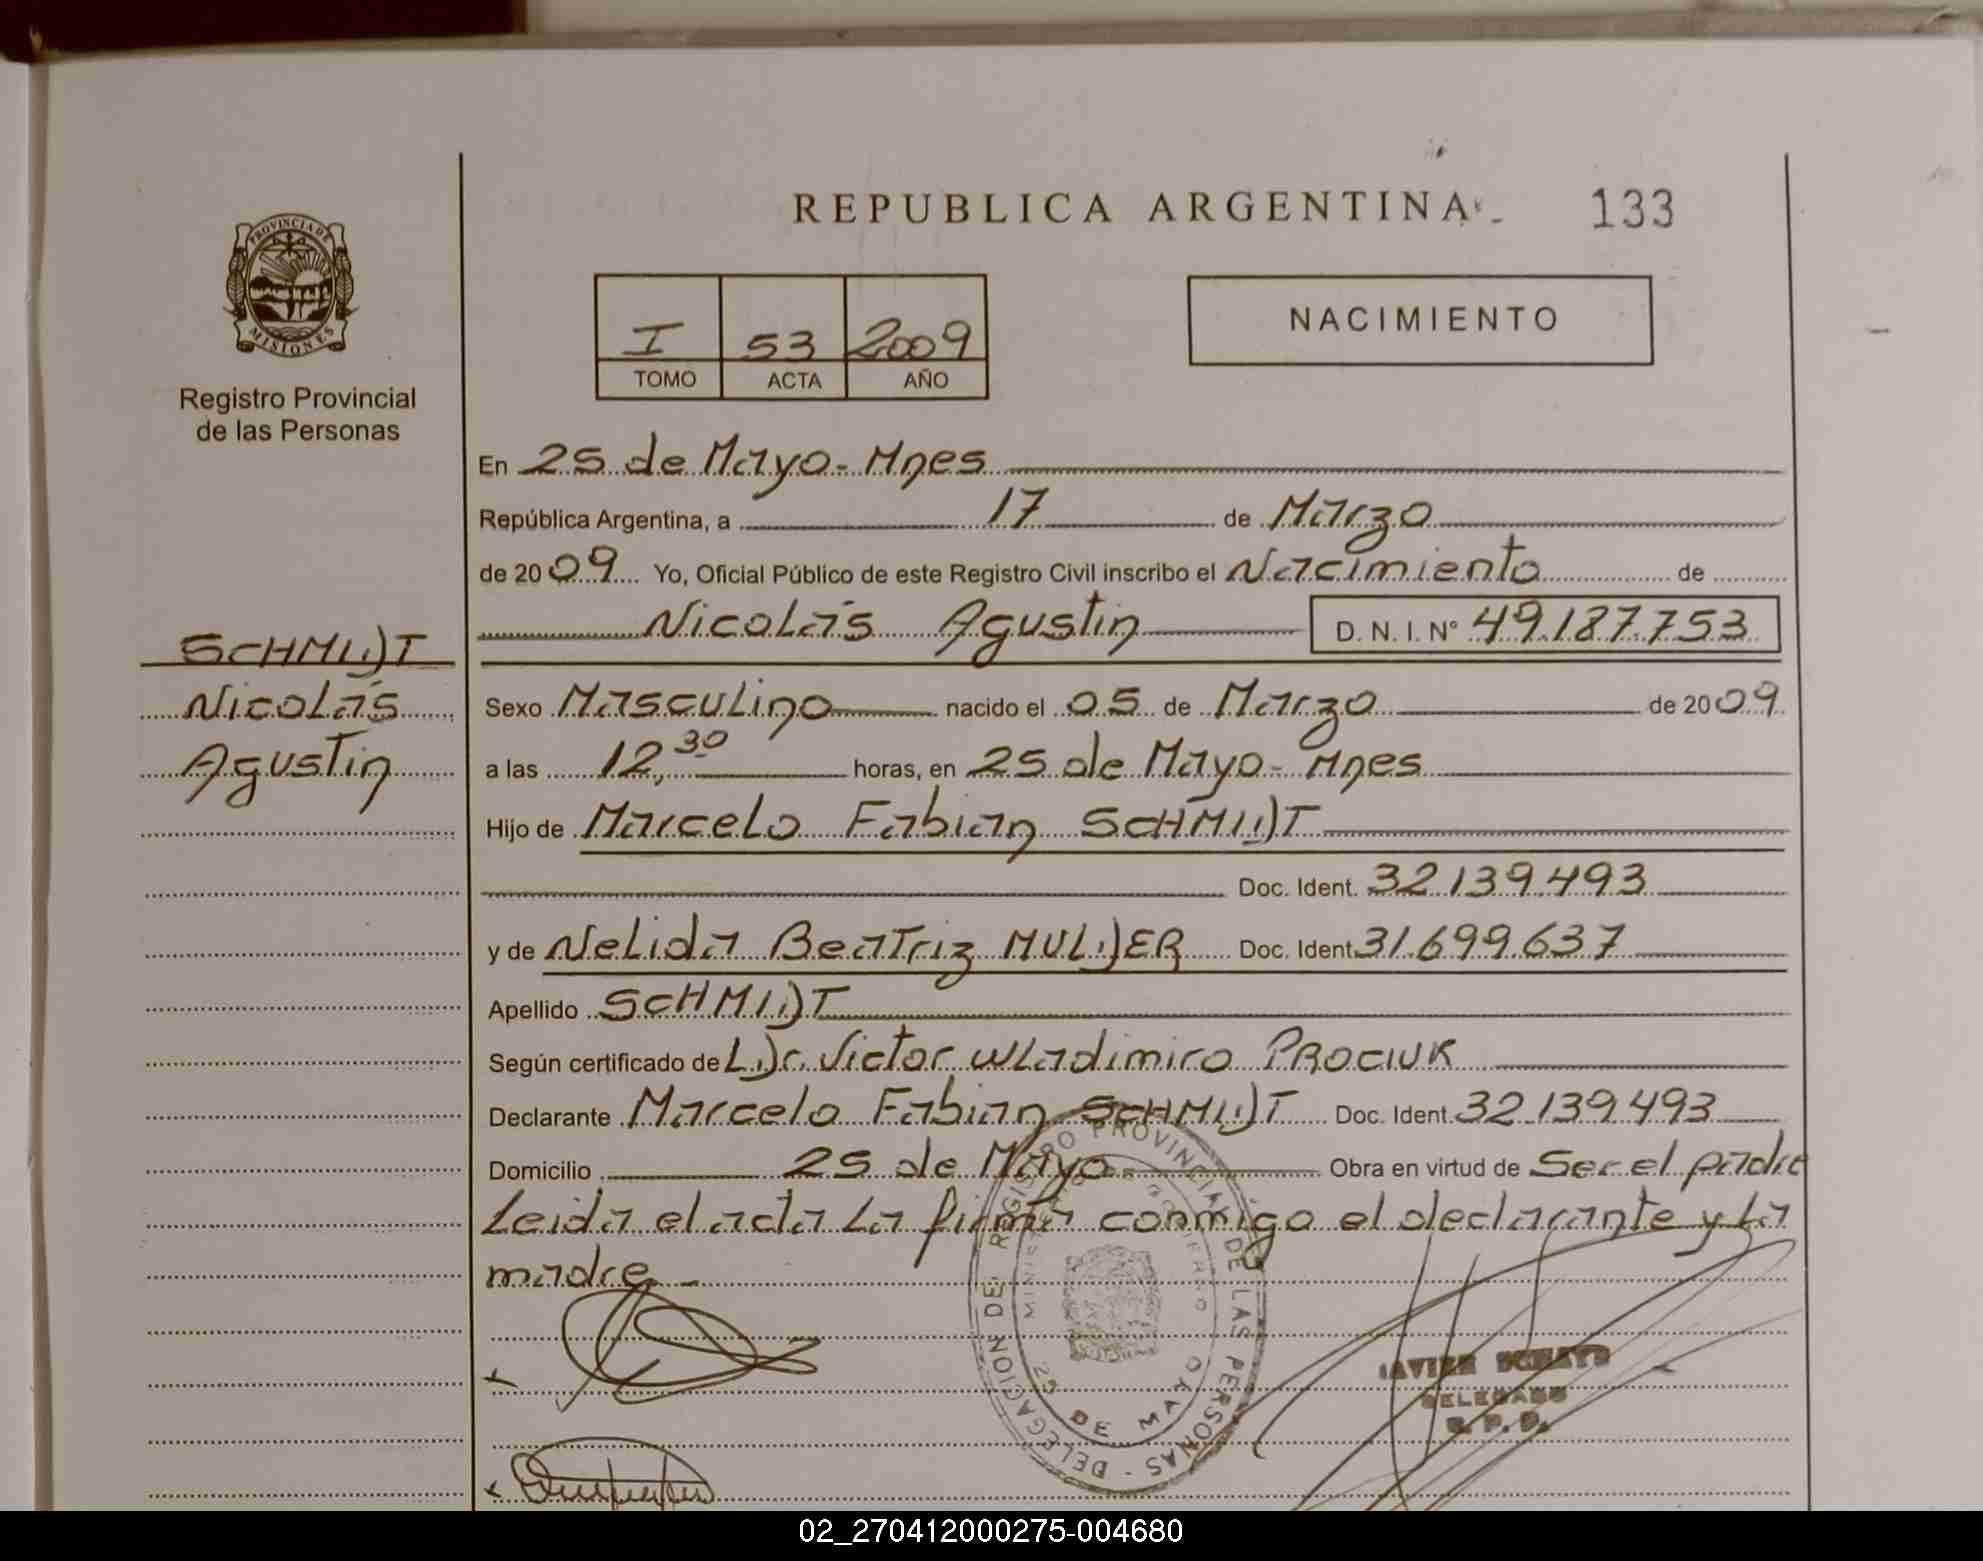 REPUBLICA ARGENTINA
133
PROVINCIA DE
MISIONES
Registro Provincial
de las Personas
I 53 2009
TOMO ACTA AÑO
NACIMIENTO
En 25 de Mayo - Mnes
República Argentina, a 17 de Marzo
de 2009 Yo, Oficial Público de este Registro Civil inscribo el Nacimiento de
Nicolás Agustin D. N. I. N° 49.187.753
SCHMIDT
Nicolás
Agustin
Sexo Masculino nacido el 05 de Marzo de 2009
a las 12,30 horas, en 25 de Mayo - Mnes
Hijo de Marcelo Fabian SCHMIDT
Doc. Ident. 32.139.493
y de Nelida Beatriz Doc. Ident. 31.699.637
Apellido SCHMIDT
Según certificado de L Dr. Victor Wladimiro PROCIUK
Declarante Marcelo Fabian SCHMIDT Doc. Ident. 32.139.493
Domicilio 25 de Mayo Obra en virtud de Ser el padre
Leida el acta la firma conmigo el declarante y la
madre -
DELEGACION DE REGISTRO PROVINCIAL DE LAS PERSONAS
MINISTERIO DE GOBIERNO
25 DE MAYO
JAVIER
DELEGADO
R. P. P.
02_270412000275-004680